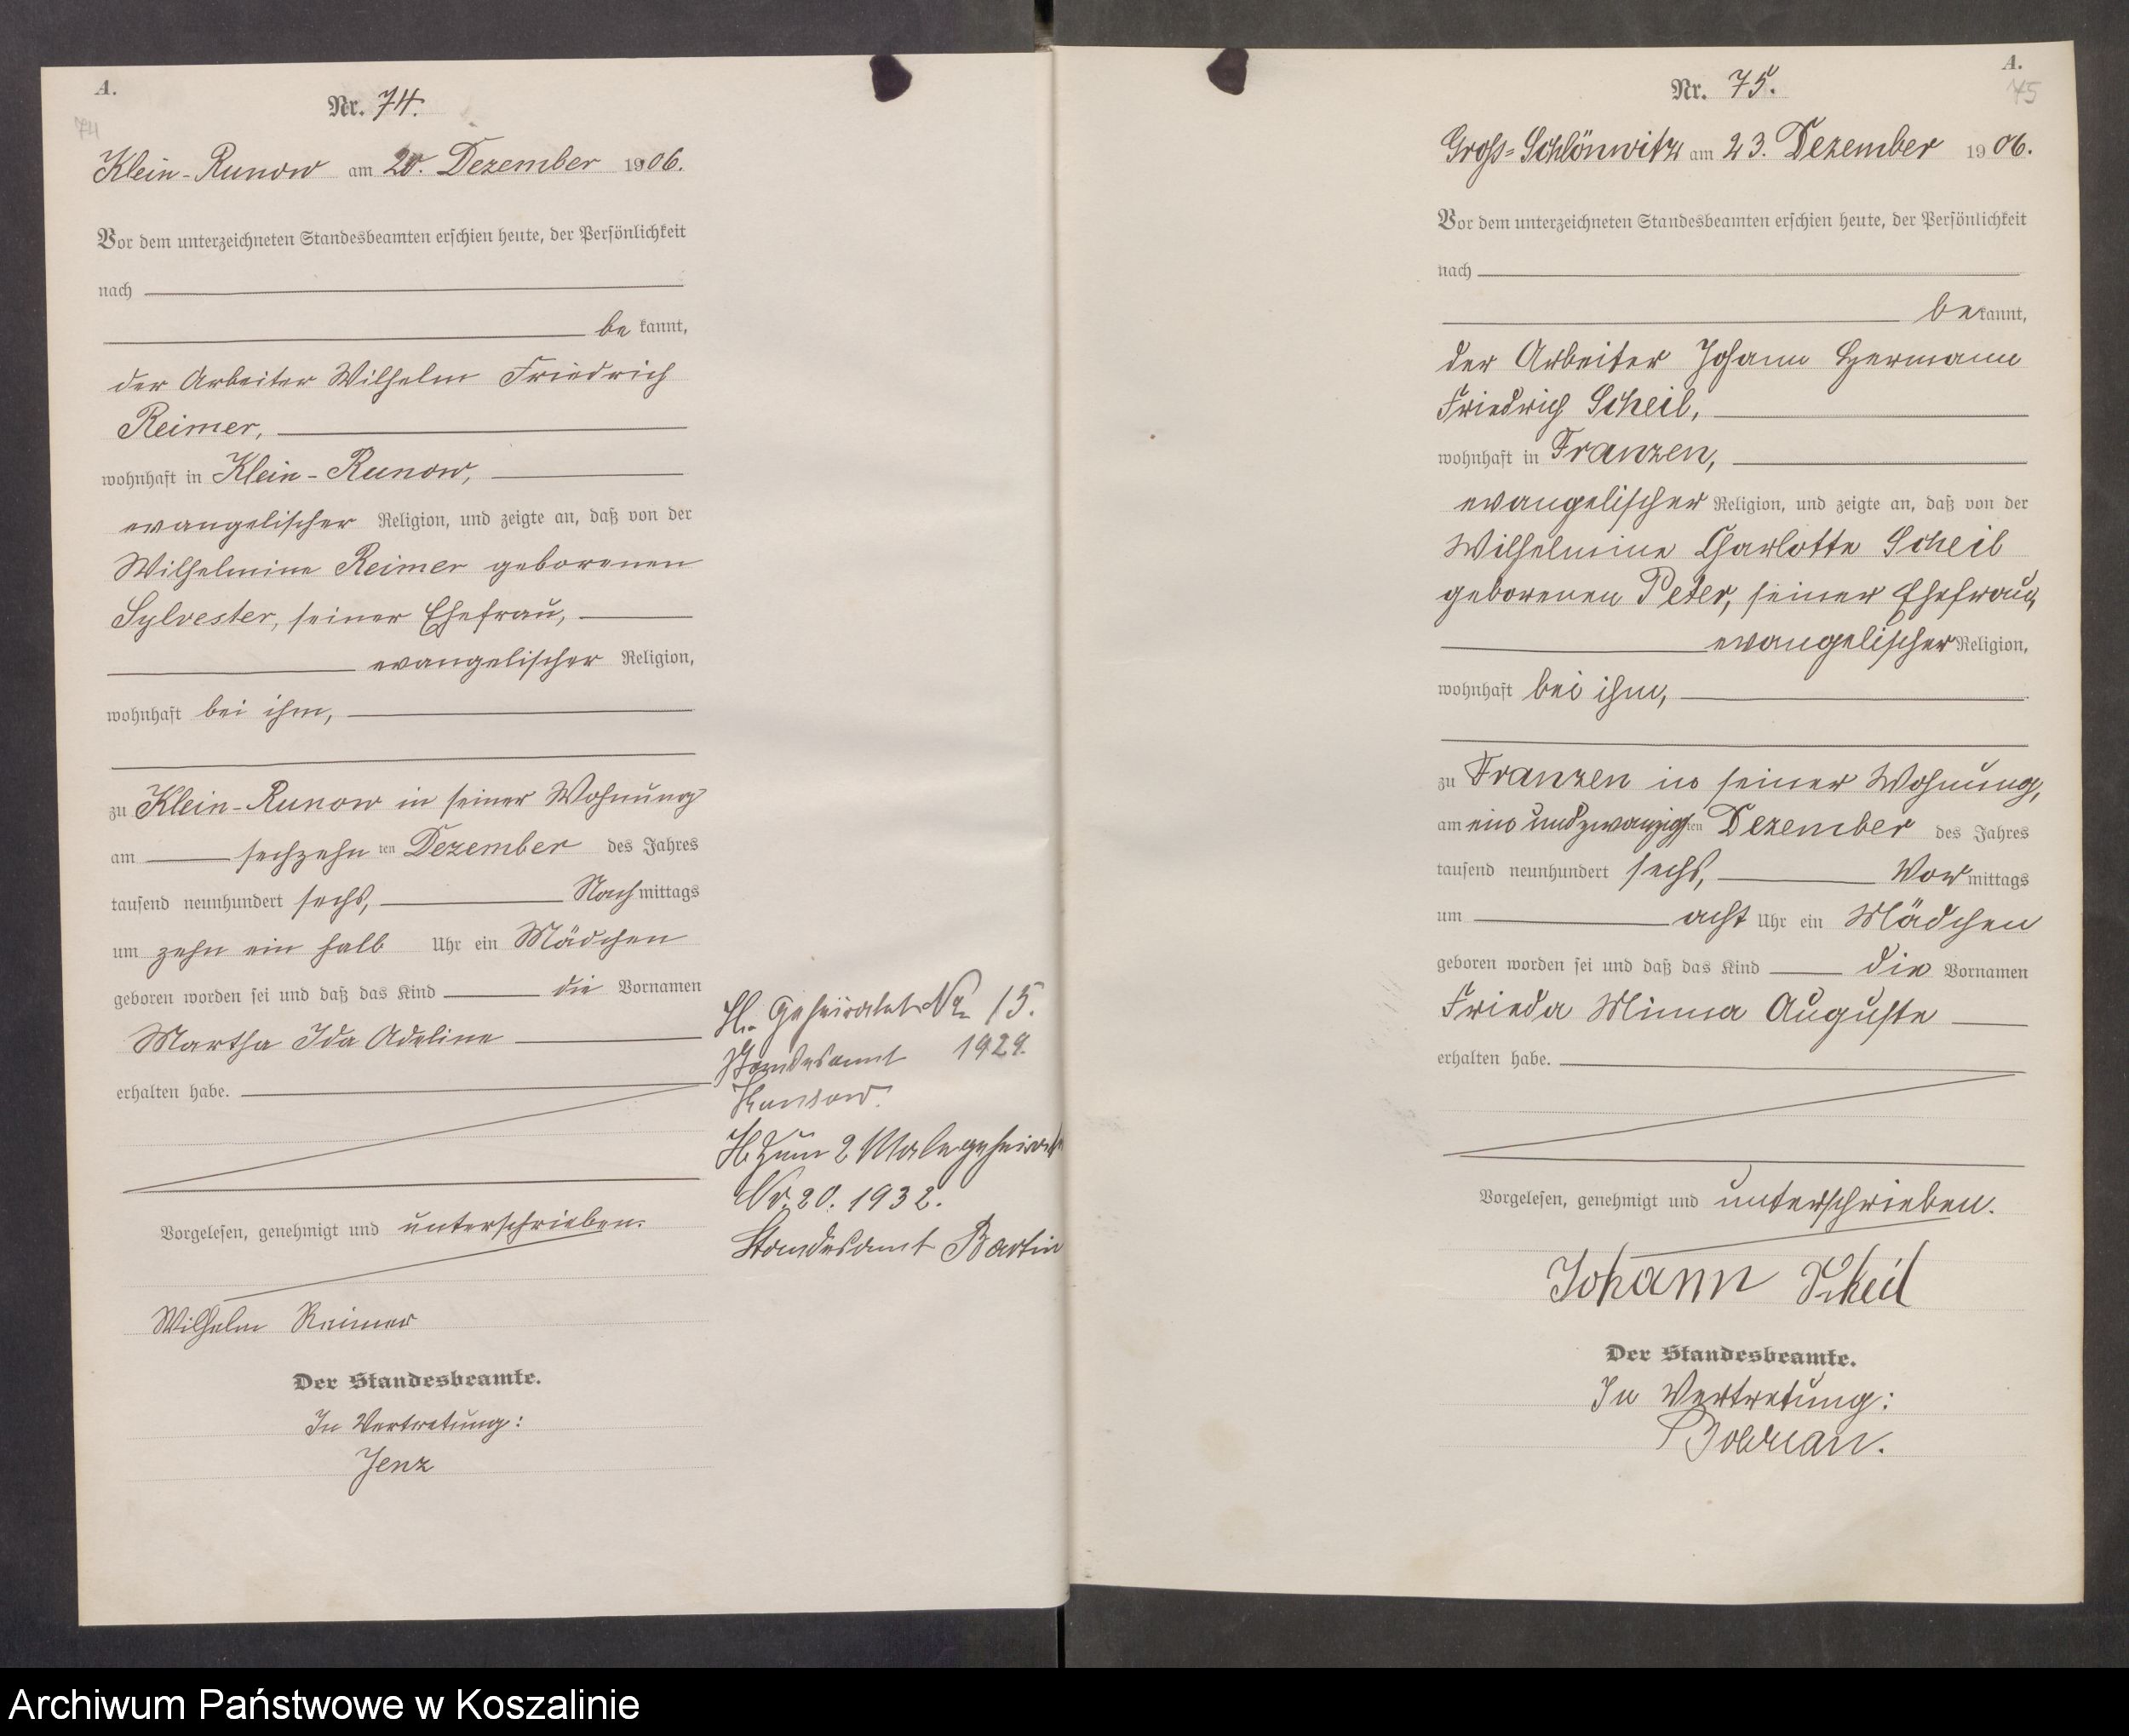 A.
74
Nr. 74.
Klein-Runow am 20. Dezember 1906.
Vor dem unterzeichneten Standesbeamten erschien heute, der Persönlichkeit
nach
be kannt,
der Arbeiter Wilhelm Friedrich
Reimer,
wohnhaft in Klein-Runow,
evangelischer Religion, und zeigte an, daß von der
Wilhelmine Reimer geborenen
Sylvester, seiner Ehefrau,
evangelischer Religion,
wohnhaft bei ihm,
zu Klein-Runow in seiner Wohnung
am sechzehn ten Dezember des Jahres
tausend neunhundert sechs, Nachmittags
um zehn ein halb Uhr ein Mädchen
geboren worden sei und daß das Kind die Vornamen
Martha Ida Adeline
erhalten habe.
Vorgelesen, genehmigt und unterschrieben.
Wilhelm Reimer
Der Standesbeamte.
In Vertretung:
Jenz
H. Geheiratet Nr. 15.
Standesamt 1929.
H. Zum 2 Male geheirat
Nr. 20. 1932.
Standesamt Bartin
A.
75
Nr. 75.
Gross-Schlönwitz am 23. Dezember 1906.
Vor dem unterzeichneten Standesbeamten erschien heute, der Persönlichkeit
nach
bekannt,
der Arbeiter Johann Hermann
Friedrich Scheil,
wohnhaft in Franzen,
evangelischer Religion, und zeigte an, daß von der
Wilhelmine Charlotte Scheil
geborenen Peter, seiner Ehefrau,
evangelischer Religion,
wohnhaft bei ihm,
zu Franzen in seiner Wohnung,
am ein und zwanzigten Dezember des Jahres
tausend neunhundert sechs, Vormittags
um acht Uhr ein Mädchen
geboren worden sei und daß das Kind die Vornamen
Frieda Minna Auguste
erhalten habe.
Vorgelesen, genehmigt und unterschrieben.
Johann Scheil
Der Standesbeamte.
In Vertretung:
Archiwum Państwowe w Koszalinie